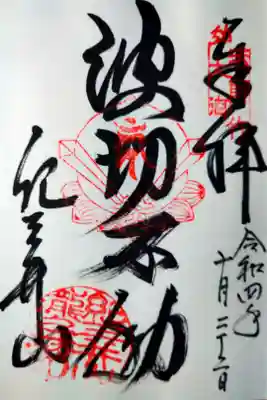 奉拝
令和四年
十月二十二日
波切不動
紀三井山